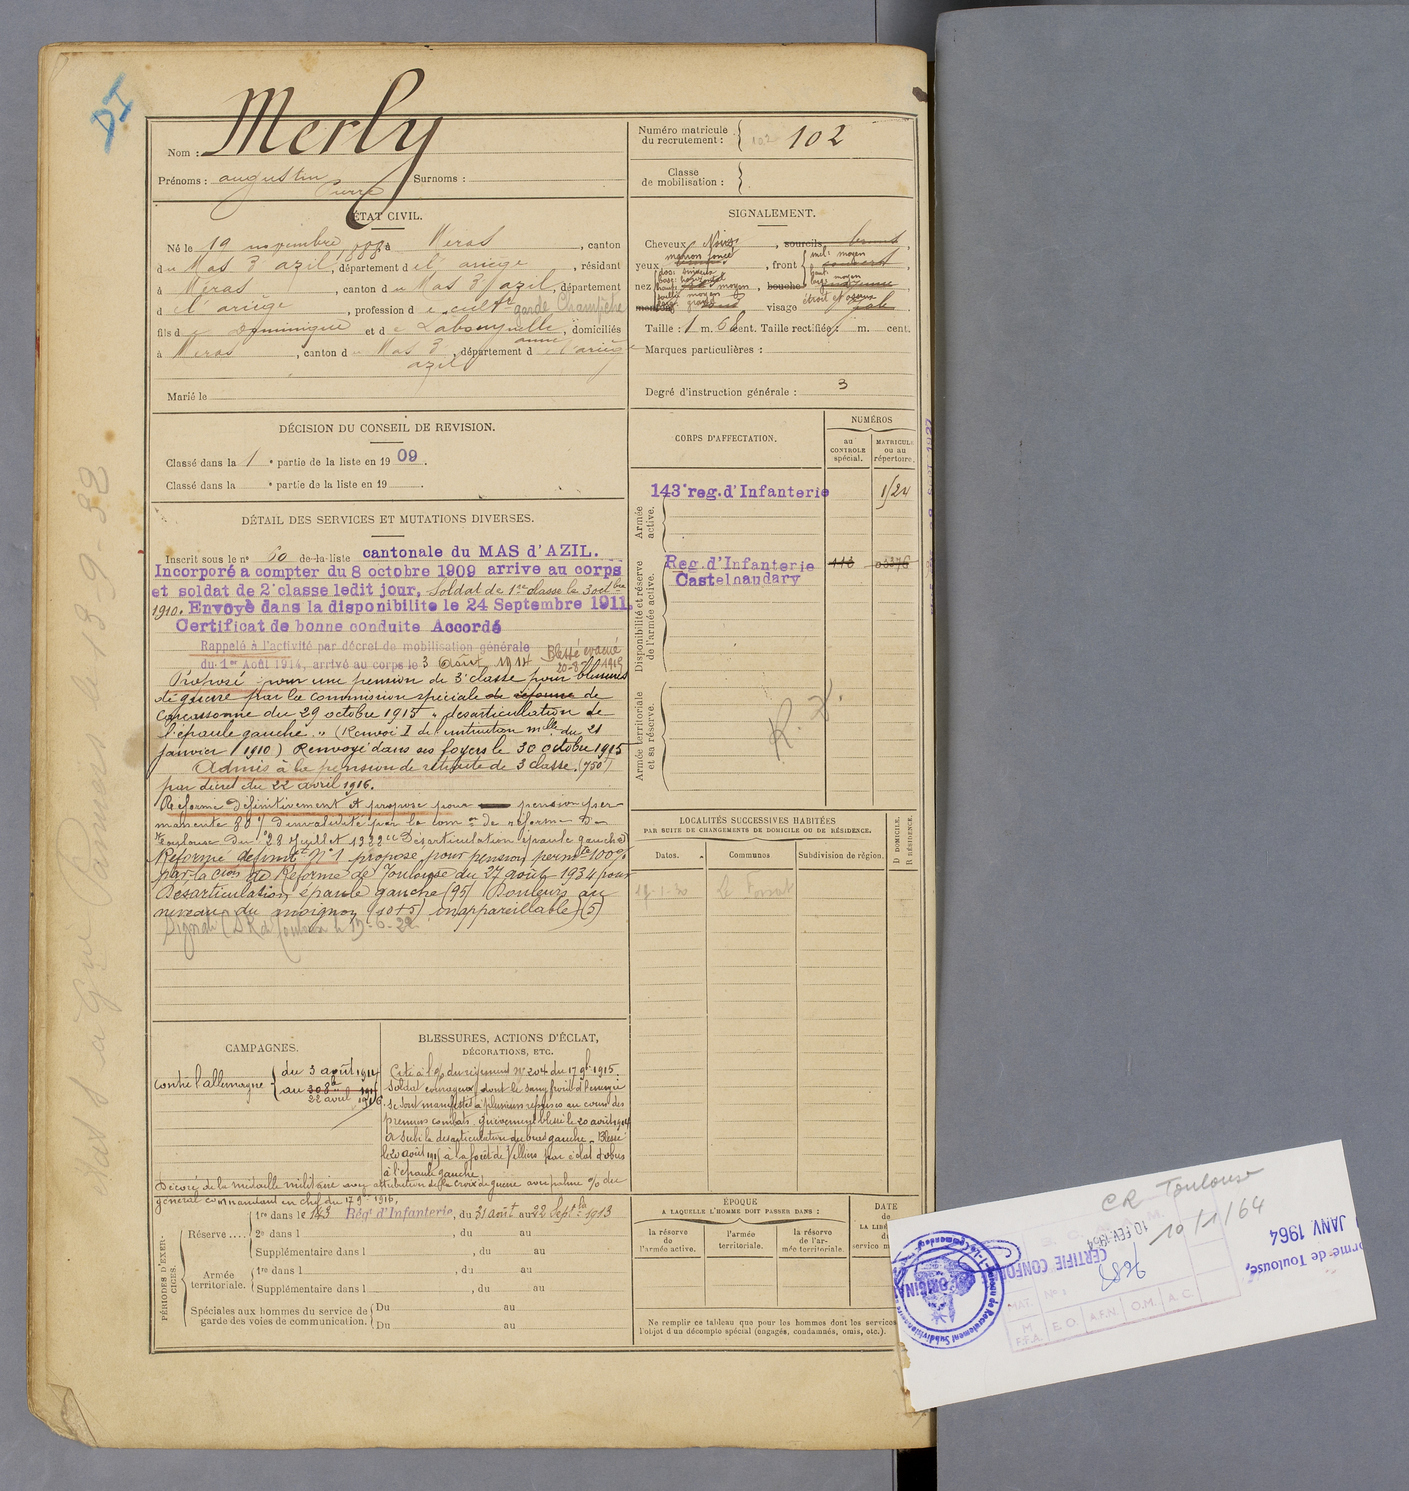 DI
Nom : Merly
Prénoms : augustin Surnoms :
Pierre
ÉTAT CIVIL.
Né le 19 novembre 1888 à Méras, canton
du Mas d'azil, département de l'ariège, résidant
à Méras, canton du Mas d'azil, département
d e l'ariège, profession d e cultr garde Champêtre
fils d e Dominique et d e Labouynelle, domiciliés
anne
à Méras, canton du Mas d, département d e l'ariège
azil
Marié le
DÉCISION DU CONSEIL DE REVISION.
Classé dans la 1e partie de la liste en 1909.
Classé dans la e partie de la liste en 19
DÉTAIL DES SERVICES ET MUTATIONS DIVERSES.
Inscrit sous le n° 60 de la liste cantonale du MAS d'AZIL.
Incorporé a compter du 8 octobre 1909 arrive au corps
et soldat de 2e classe ledit jour, Soldat de 1re classe le 3 octbre
1910. Envoyè dans la disponibilite le 24 Septembre 1911.
Certificat de bonne conduite Accordé
Rappelé à l'activité par décret de mobilisation générale
du 1er Août 1914, arrivé au corps le 3 Août 1914 Blessé évacué
20-8-
Proposé pour une pension de 3e classe pour blessures
de guerre par la commission spéciale de réforme de
Carcassonne du 29 octobre 1915 " désarticulation de
l'épaule gauche " (Renvoi I de l'instruction mlle du 21
janvier 1910) Renvoyé dans ses foyers le 30 octobre 1915
Admis à la pension de retraite de 3 classe. (750f)
par décret du 22 avril 1916.
Réformé définitivement et proposé pour pension per-
manente 80% d'invalidité par la comon de réforme de
Toulouse du 28 juillet 1922 "Désarticulation épaule gauche"
Réformé définit n° 1 proposé pour pension permte 100%
par la Cion de Réforme de Toulouse du 27 août 1934 pour
Désarticulation épaule gauche (95) Douleurs au
niveau du moignon (10+5) inappareillable (5)
Signalé C D R de Toulouse le
CAMPAGNES.
Contre l'allemagne { du 3 août 1914
au 30 8bre 1915
22 avril 1916
BLESSURES, ACTIONS D'ÉCLAT,
DÉCORATIONS, ETC.
Cité à l'o/ du régiment n° 204 du 17 9bre 1915.
Soldat courageux dont le sang froid et l'énergie
se sont manifestés à plusieurs reprises au cours des
premiers combats. Grièvement blessé le 20 août 1914
a subi la désarticulation du bras gauche. Blessé
le 20 août 1914 à la forêt de Villiers par éclat d'obus
à l'épaule gauche.
Décoré de la médaille militaire avec attribution de la croix de guerre avec palme % du
général commandant en chef du 17 9bre 1915.
PÉRIODES D'EXER-
CICES.
Réserve.... 1re dans le 143 Régt d'Infanterie, du 31 août au 22 Septbre 1913
2e dans l , du au
Supplémentaire dans l , du au
Armée
territoriale. 1re dans l , du au
Supplémentaire dans l , du au
Spéciales aux hommes du service de
garde des voies de communication. Du au
Du au
Numéro matricule
du recrutement : 102 102
Classe
de mobilisation :
SIGNALEMENT.
Cheveux Noirs, sourcils bruns,
yeux marron foncé, front incl: moyen
haut: moyen
larg: moyen
nez dos: sinueux
base: horizontal
moyen, bouche moyenne
visage étroit & osseux
ovale
Taille : 1 m. 68 cent. Taille rectifiée : m. cent.
Marques particulières :
Degré d'instruction générale : 3
CORPS D'AFFECTATION.
NUMÉROS
au
CONTROLE
spécial.
MATRICULE
ou au
répertoire.
Armée
active.
143e reg. d'Infanterie
Disponibilité et réserve
de l'armée active.
Reg. d'Infanterie
Castelnaudary
Armée territoriale
et sa réserve.
LOCALITÉS SUCCESSIVES HABITÉES
PAR SUITE DE CHANGEMENTS DE DOMICILE OU DE RÉSIDENCE.
Dates. Communes Subdivision de région.
D DOMICILE.
R RÉSIDENCE.
Le Fossat
ÉPOQUE
A LAQUELLE L'HOMME DOIT PASSER DANS :
la réserve
de
l'armée active.
l'armée
territoriale.
la réserve
de l'ar-
mée territoriale.
DATE
de
LA LIBÉ
service m
Ne remplir ce tableau que pour les hommes dont les services
l'objet d'un décompte spécial (engagés, condamnés, omis, etc.).
CR Toulouse
10/1/64
10 FEV. 1964
CERTIFIE CONFO
ORIGINAL
Bureau de Recrutement Subdivisionnaire
JANV. 1964
orme de Toulouse,
MAT. N° :
M
F.F.A. E.O. A.F.N. O.M. A.C.